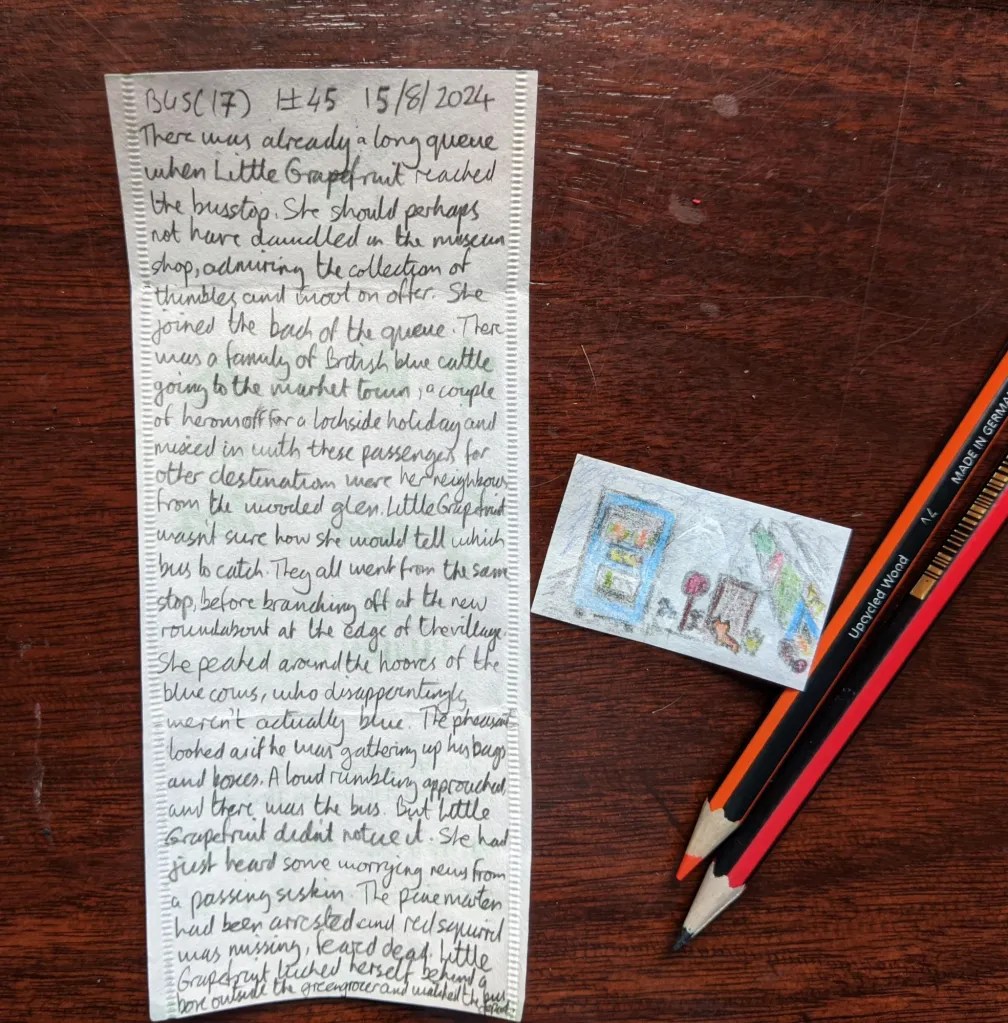 BUS(17) 1±45 15/8/2024
There was already a long queue
when Little Grapefruit reached
the busstop. She should perhaps
not have dawdled in the museum
shop, admiring the collection of
thimbles and wool on offer. She
joined the back of the queue. There
was a family of British blue cattle
going to the market town, a couple
of heron off for a lochside holiday and
mixed in with these passengers for
other destination were her neighbours
from the wooded glen. Little Grapefruit
wasn't sure how she would tell which
bus to catch. They all went from the same
stop, before branching off at the new
roundabout at the edge of the village.
She peaked around the hooves of the
blue cows, who disappointingly
weren't actually blue. The pheasant
looked as if he was gathering up his bags
and boxes. A loud rumbling approached,
and there was the bus. But Little
Grapefruit didn't notice it. She had
just heard some worrying news from
a passing siskin. The pine marten
had been arrested and red squirrel
was missing, feared dead. Little
Grapefruit tucked herself behind a
box outside the greengrocer and watched the bus
depart.
MADE IN GERMA
Upcycled Wood